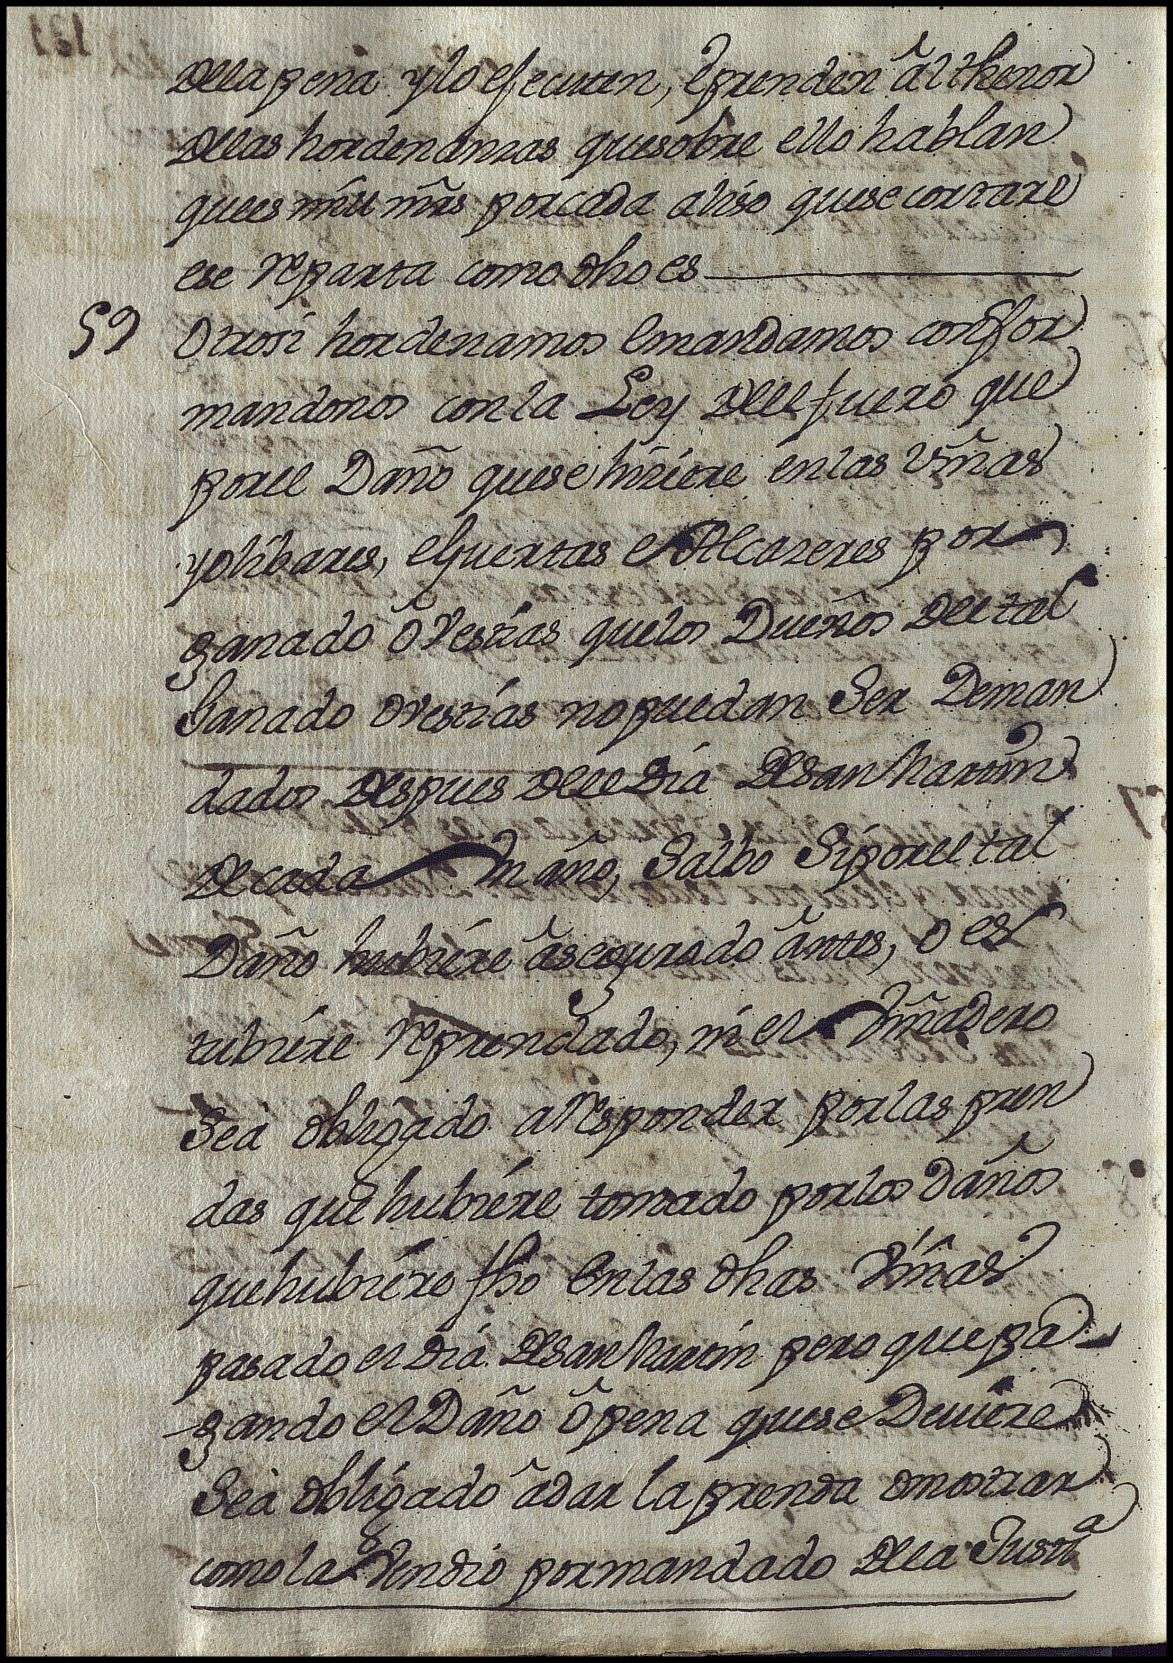 dela pena y lo ejecuten, e prenden â el thenor
delas hordenanzas que sobre ello hablan
que es mill mrs por cada aliso que se cortare
ese rreparta como dho es
59 Otrosi hordenamos e mandamos confor
mandonos con la Ley dell fuero que
por el Daño que se hiziere en las viñas
y olibares, e huertas e Alcazeres por
ganado ô vestias que los Dueños del tal
Ganado o vestias no puedan Ser Deman
dados despues dell dia de San Martin
de cada un año, Salbo Si por el tal
Daño hubiere âsegurado ântes, o es
tubiere rreprendado, ni el viñadero
Sea obligado a rresponder por las pren
das que hubiere tomado por los Daños
que hubiere fho en las dhas viñas
pasado el dia de San Martin pero que pa
gando el Daño ô pena que se Deviere
Sea obligado â dar la prenda o mostrar
como la vendio por mandado dela Justa